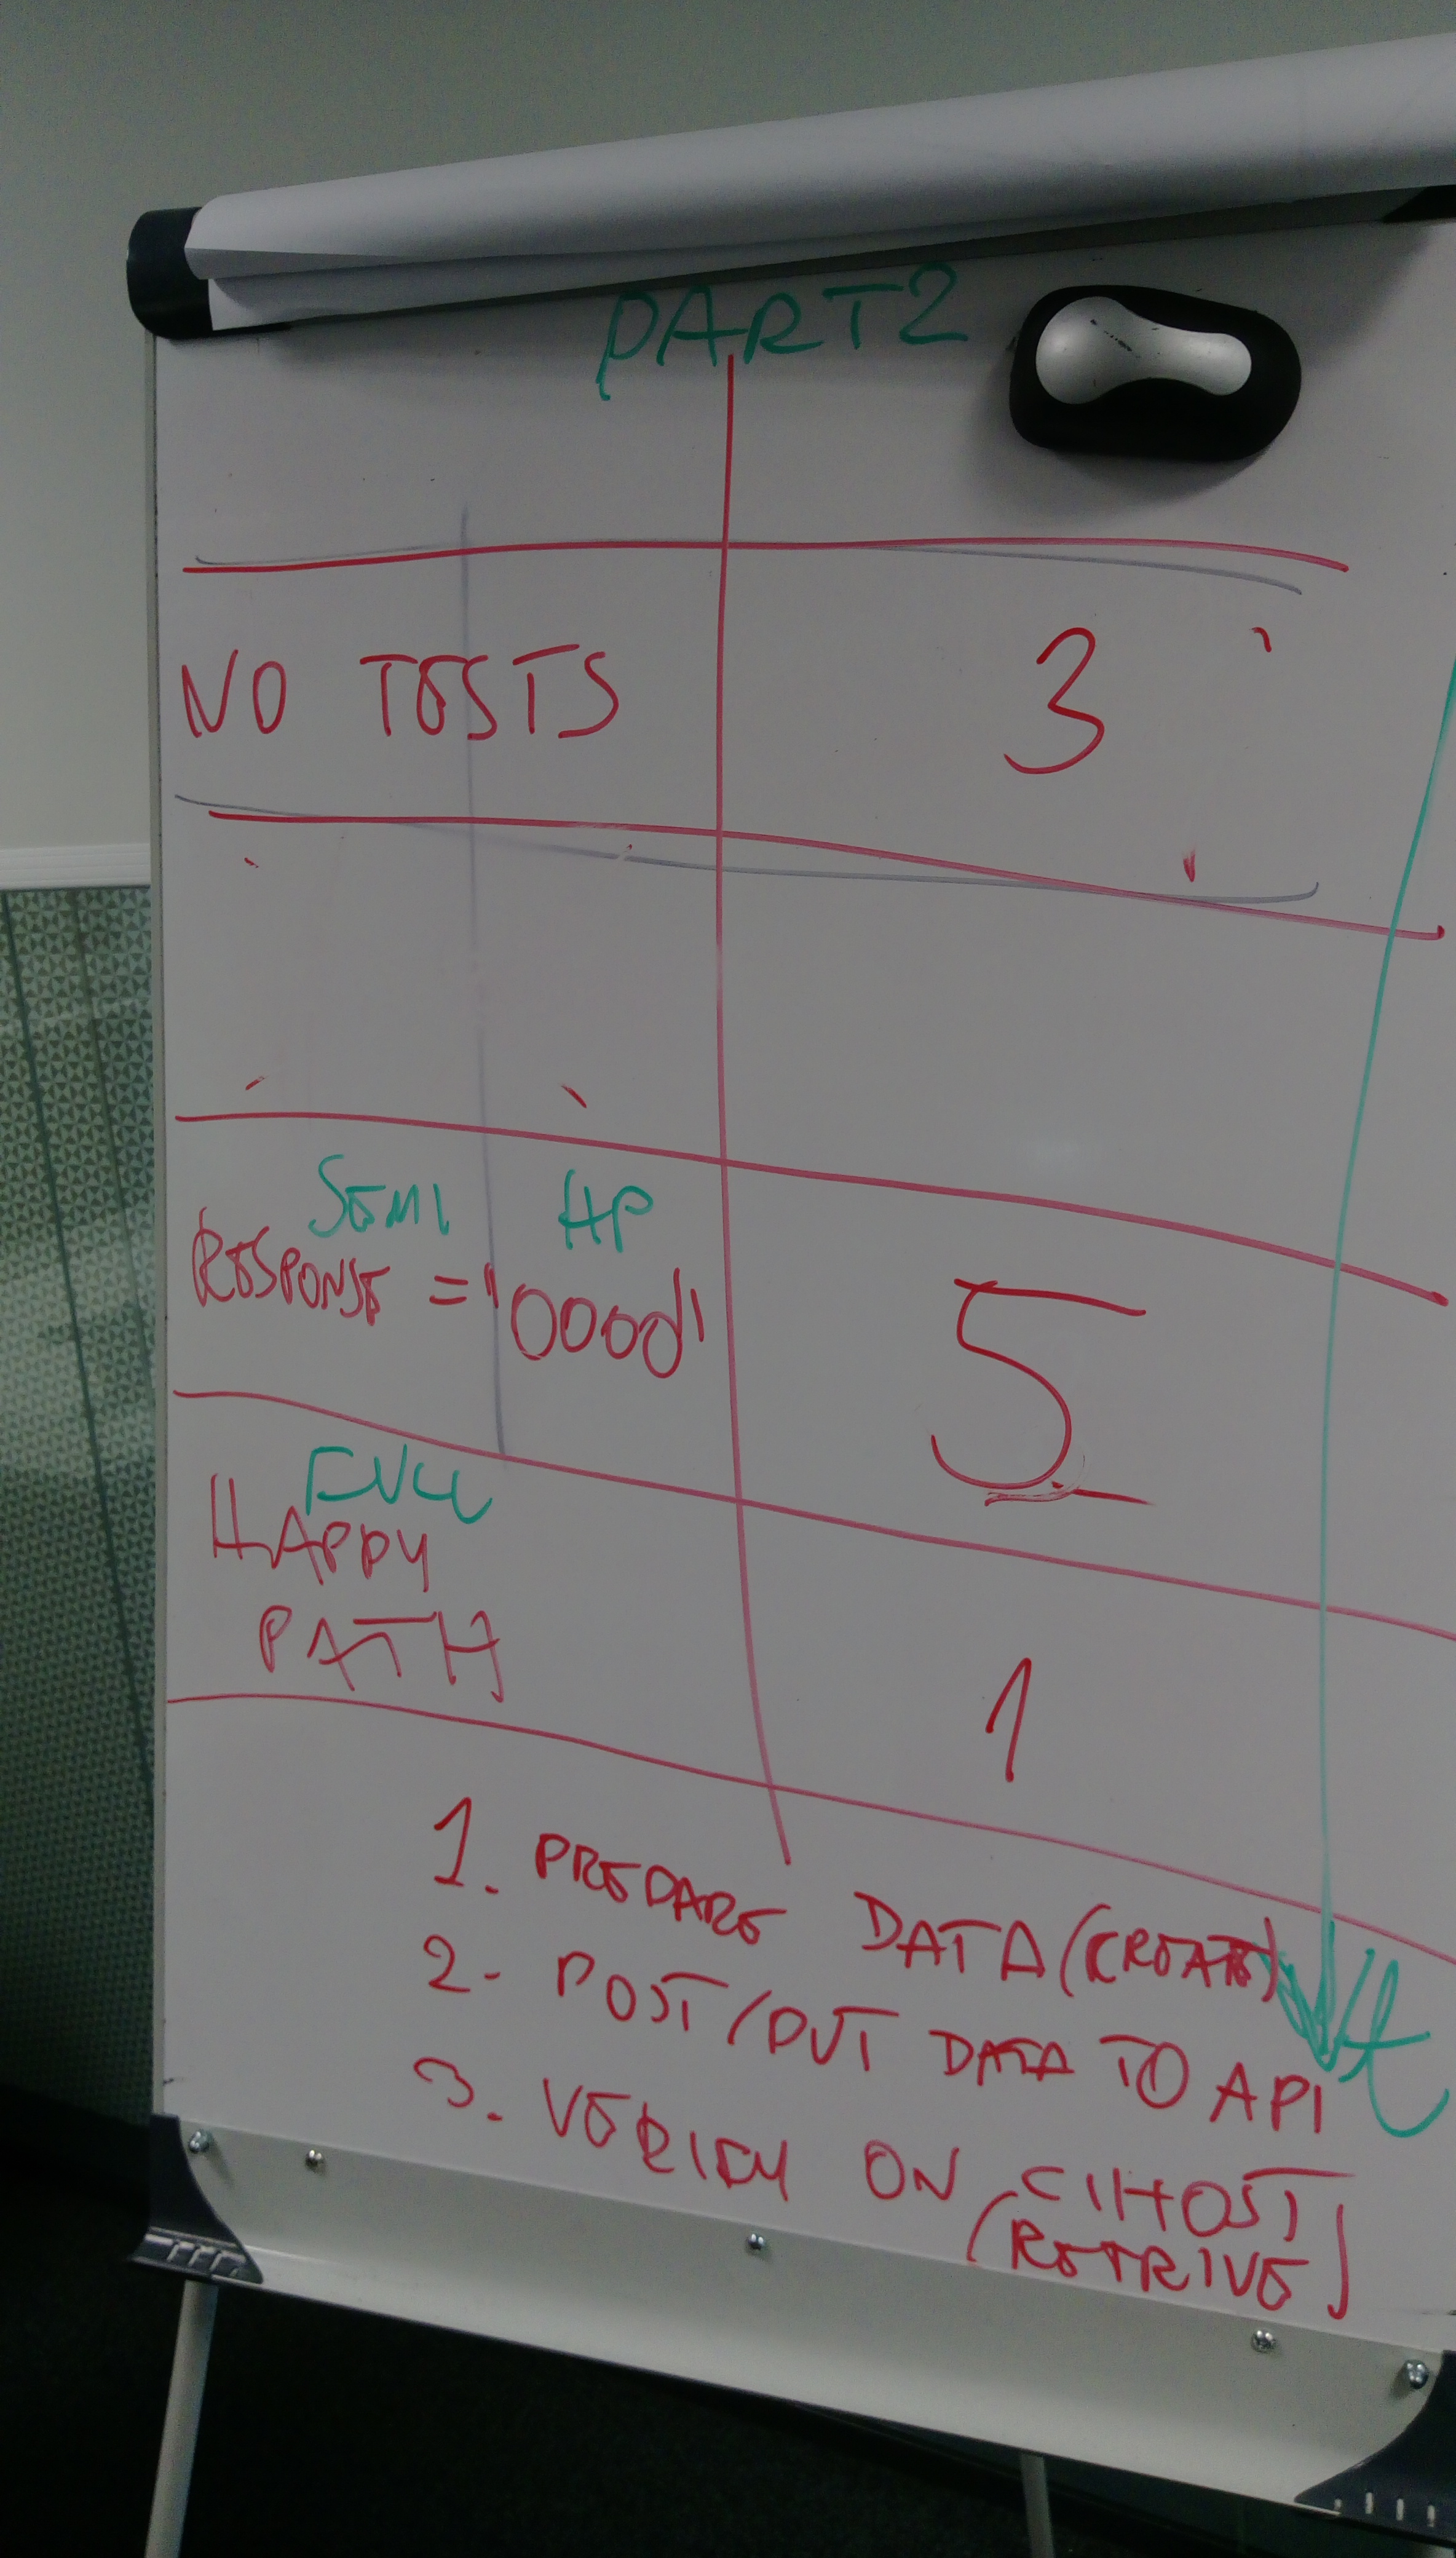 PART2
NO TESTS 3
SEMI HP
RESPONSE = '0000' 5
FULL
HAPPY
PATH 1
1. PREPARE DATA (CREATE)
2. POST/PUT DATA TO API
t
3. VERIFY ON C1HOST
(RETRIVE)